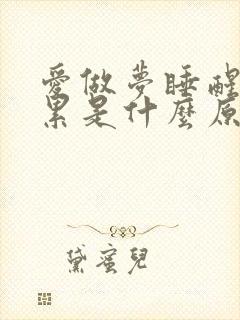 愛做夢睡醒
累是什麼原
黛蜜兒